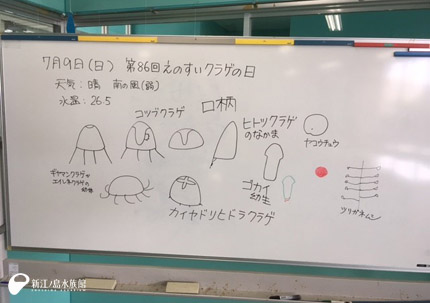 7月9日(日) 第86回えのすいクラゲの日
天気:晴 南の風(弱)
水温:26.5
コツブクラゲ
口柄
ヒトツクラゲ
のなかま
ヤコウチュウ
ギヤマンクラゲや
エイレネクラゲの
幼体
カイヤドリヒドラクラゲ
ゴカイ
幼生
ツリガネムシ
新江ノ島水族館